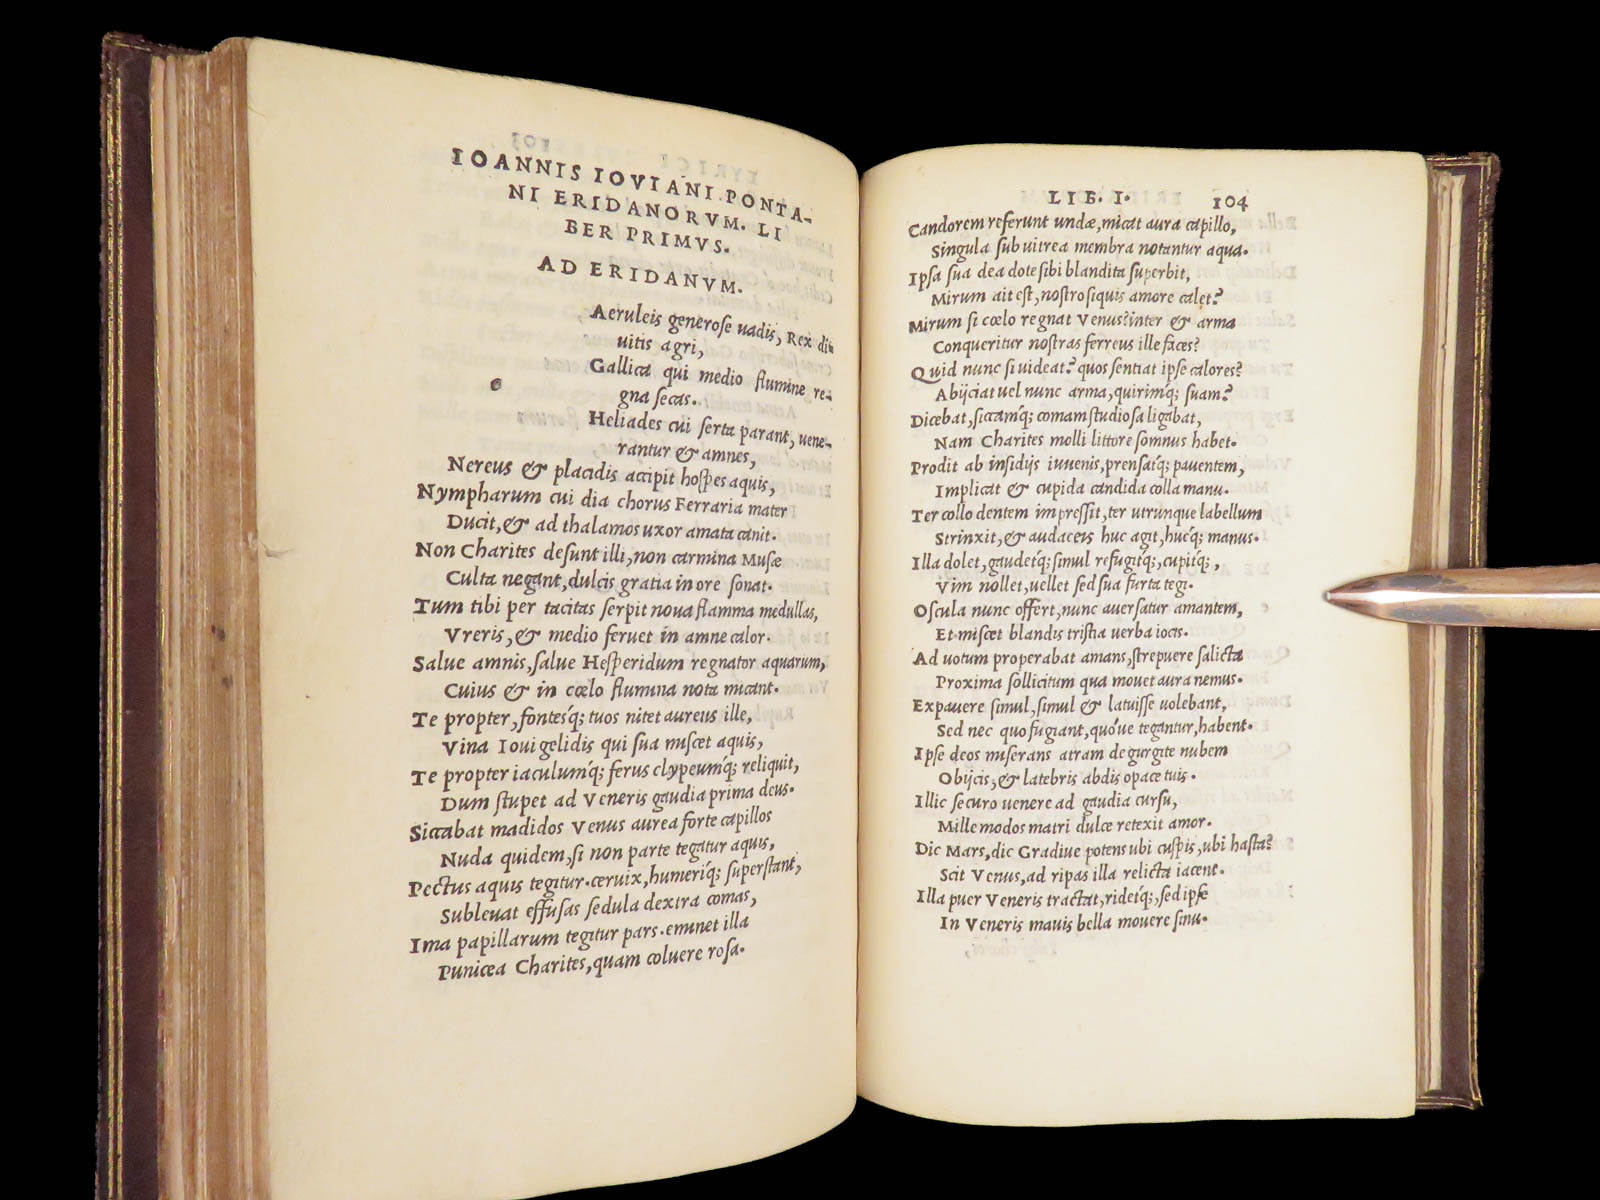 IOANNIS IOVIANI PONTA-
NI ERIDANORVM. LI
BER PRIMVS.
AD ERIDANVM.
c
Aeruleis generose uadis, Rex di-
uitis agri,
Gallica qui medio flumine re-
gna secas.
Heliades cui serta parant, uene-
rantur & amnes,
Nereus & placidis accipit hospes aquis,
Nympharum cui dia chorus Ferraria mater
Ducit, & ad thalamos uxor amata canit.
Non Charites desunt illi, non carmina Musæ
Culta negant, dulcis gratia in ore sonat.
Tum tibi per tacitas serpit noua flamma medullas,
Vreris, & medio feruet in amne calor.
Salue amnis, salue Hesperidum regnator aquarum,
Cuius & in cœlo flumina nota micant.
Te propter, fontesq́; tuos nitet aureus ille,
Vina Ioui gelidis qui sua miscet aquis,
Te propter iaculumq́; ferus clypeumq́; reliquit,
Dum stupet ad Veneris gaudia prima deus.
Siccabat madidos Venus aurea forte capillos
Nuda quidem, si non parte tegatur aquis,
Pectus aquis tegitur. ceruix, humeriq́; superstant,
Subleuat effusas sedula dextra comas,
Ima papillarum tegitur pars. eminet illa
Punicea Charites, quam coluere rosa.
LIB. I. 104
Candorem referunt undæ, micat aura capillo,
Singula sub uitrea membra notantur aqua.
Ipsa sua dea dote sibi blandita superbit,
Mirum ait est, nostro siquis amore calet?
Mirum si cœlo regnat Venus? inter & arma
Conqueritur nostras ferreus ille faces?
Quid nunc si uideat? quos sentiat ipse calores?
Abijciat uel nunc arma, quirimq́; suam?
Dicebat, siccamq́; comam studiosa ligabat,
Nam Charites molli littore somnus habet.
Prodit ab insidijs iuuenis, prensatq́; pauentem,
Implicat & cupida candida colla manu.
Ter collo dentem impressit, ter utrunque labellum
Strinxit, & audaceis huc agit, hucq́; manus.
Illa dolet, gaudetq́; simul refugitq́;, cupitq́;,
Vim nollet, uellet sed sua furta tegi.
Oscula nunc offert, nunc auersatur amantem,
Et miscet blandis tristia uerba iocis.
Ad uotum properabat amans, strepuere salicta
Proxima sollicitum qua mouet aura nemus.
Expauere simul, simul & latuisse uolebant,
Sed nec quo fugiant, quó'ue tegantur, habent.
Ipse deos miserans atram de gurgite nubem
Obijcis, & latebris abdis opace tuis.
Illic securo uenere ad gaudia cursu,
Mille modos matri dulce retexit amor.
Dic Mars, dic Gradiue potens ubi cuspis, ubi hasta?
Scit Venus, ad ripas illa relicta iacent.
Illa puer Veneris tractat, ridetq́;, sed ipse
In Veneris mauis bella mouere sinu.